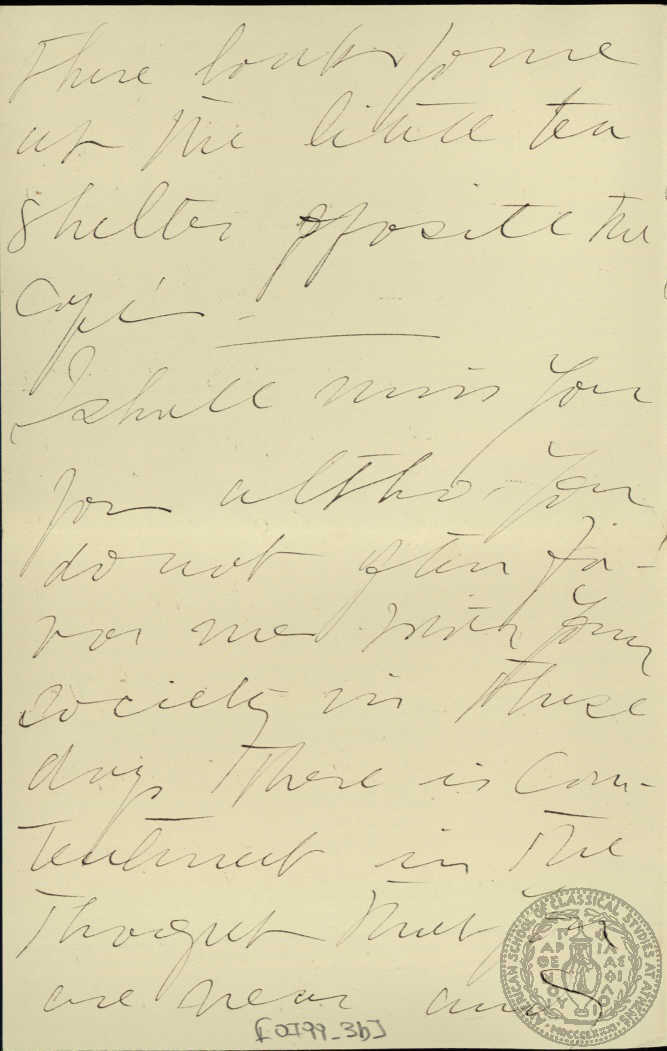 There
at the little tea
shelter opposite the
Café —
I shall miss you
for altho. you
do not often fa-
vor me with your
society in these
days there is con-
tentment in the
thought that you
are near and
[0199_3b]
AMERICAN SCHOOL OF CLASSICAL STUDIES AT ATHENS
ΠΑΡΘΕΝΟΥ
ΦΙΛΑΣ
MDCCCLXXXI